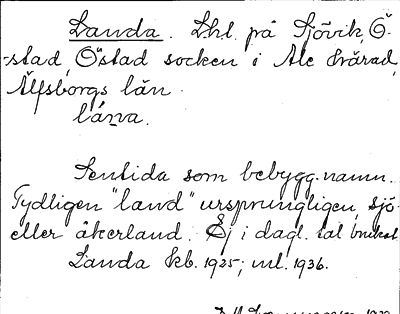 Landa. Lht. på Sjövik, Ö-
stad, Östad socken i Ale härad,
Älfsborgs län.
lána.
Sentida som bebygg.namn.
Tydligen "land" ursprungligen, sjö-
eller åkerland. Ej i dagl. tal brukat
Landa kb. 1925; ml. 1936.